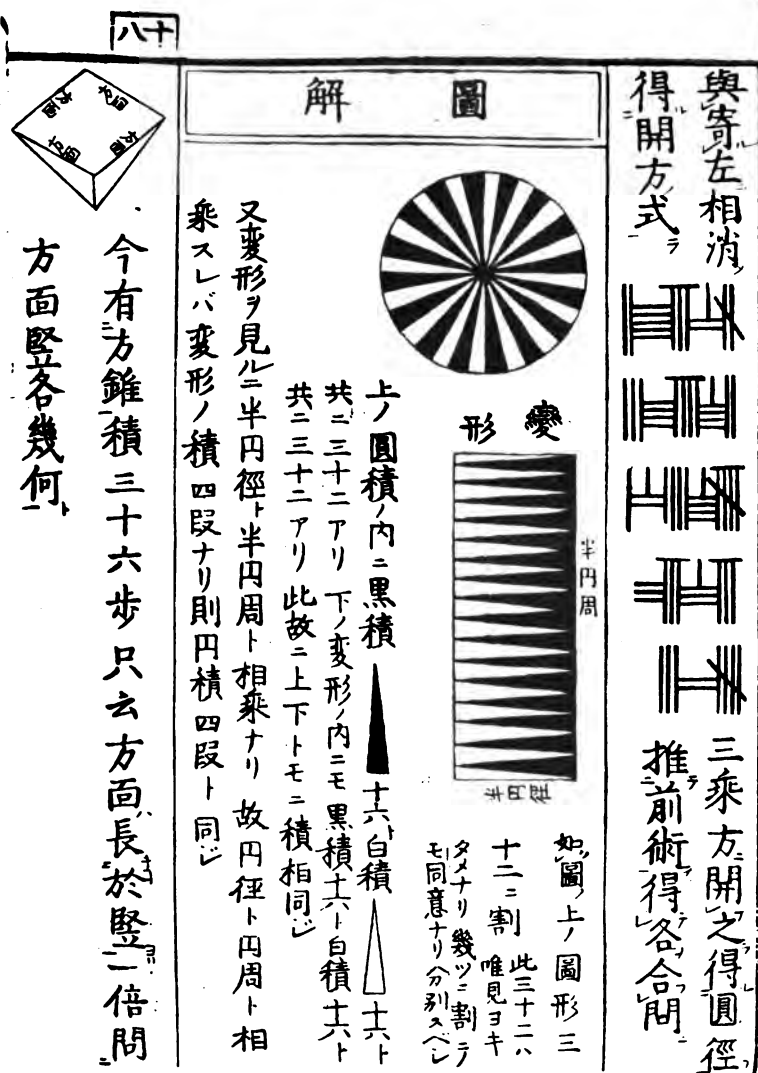 十八
與寄左相消
得開方式
三乘方開之得圓徑
推前術得各合問
圖解
變形
半円周
半円徑
如圖上ノ圖形三
十二ニ割
此三十二ハ
唯見ヨキ
タメナリ幾ツニ割テ
モ同意ナリ分別スベシ
上ノ圓積ノ内ニ黒積 十六白積 十六ト
共ニ三十二アリ下ノ変形ノ内ニモ黒積十六ト白積十六ト
共ニ三十二アリ此故ニ上下トモニ積相同シ
又変形ヲ見ルニ半円徑ト半円周ト相乘ナリ故円徑ト円周ト相
乘スレバ変形ノ積四段ナリ則円積四段ト同シ
方面
方面
今有方錐積三十六歩只云方面長於竪一倍問
方面竪各幾何